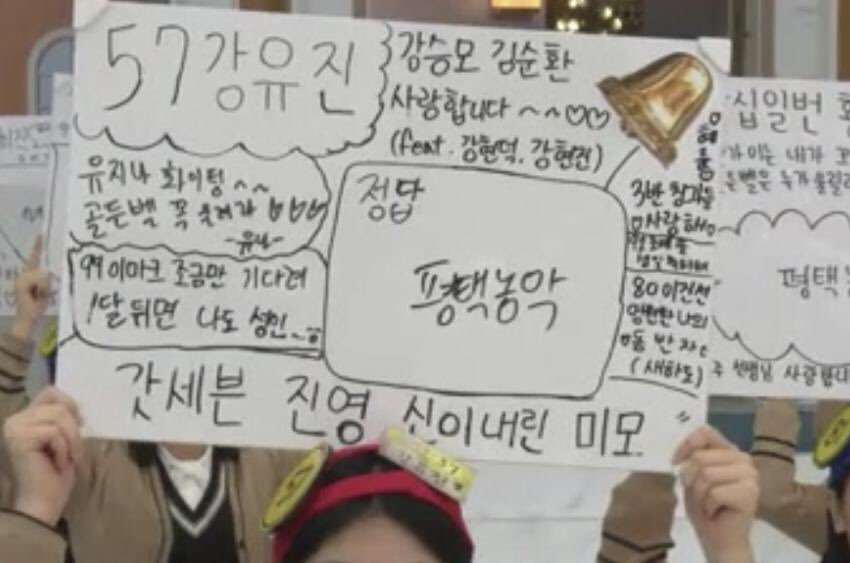 57강유진
강승모 김순환
사랑합니다 ~~♡♡
(feat. 강현덕, 강현건)
유지나 화이팅 ~~
골든벨 꼭 울려라 ♡♡♡
-유나-
99 이마크 조금만 기다려
1달 뒤면 나도 성인
정답
평택농악
3반 친구들
사랑해
80 이건선
영원한 나의
동반자
(새하도)
갓세븐 진영 신이내린 미모
십일번
가 이는 내가
든벨은 누가 울릴
평택
주 선생님 사랑합니다